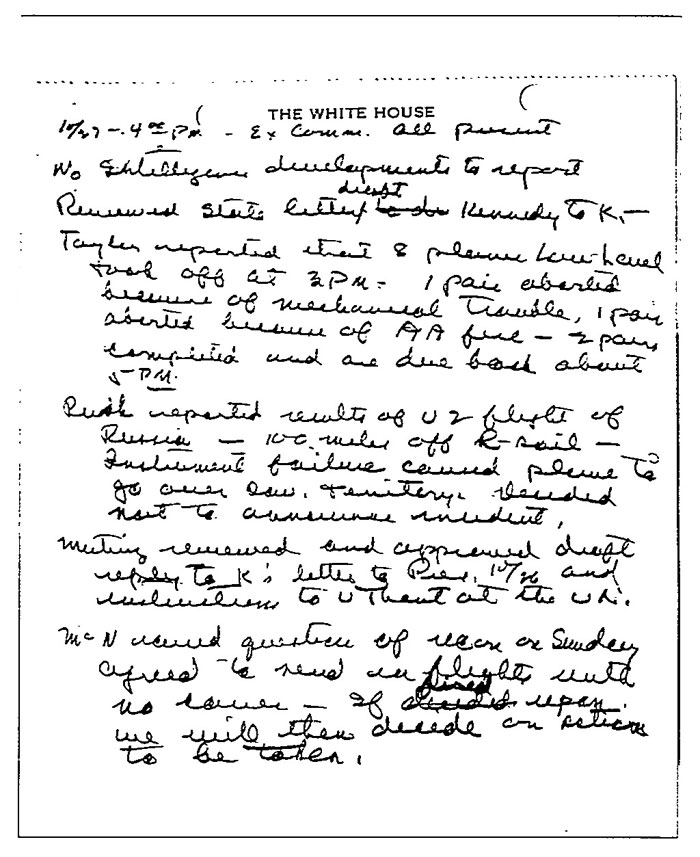 THE WHITE HOUSE
10/27 - 4:00 PM - Ex Comm. all present
No Intelligence developments to report
draft
Reviewed State letter Kennedy to K. -
Taylor reported that 8 planes Low Level
took off at 2PM - 1 pair aborted
because of mechanical trouble, 1 pair
aborted because of AA fire - 2 pairs
completed and are due back about
5 PM.
Rusk reported results of U2 flight of
Russia - 100 miles off R-soil -
Instrument failure caused plane to
go over Sov. territory. Decided
not to announce incident.
Meeting reviewed and approved draft
reply to K's letter to Pres. 10/26 and
instructions to U Thant at the UN.
McN raised question of recon on Sunday
agreed to send in flights with
no cover - If
fired
upon
we will then decide on action
to be taken.